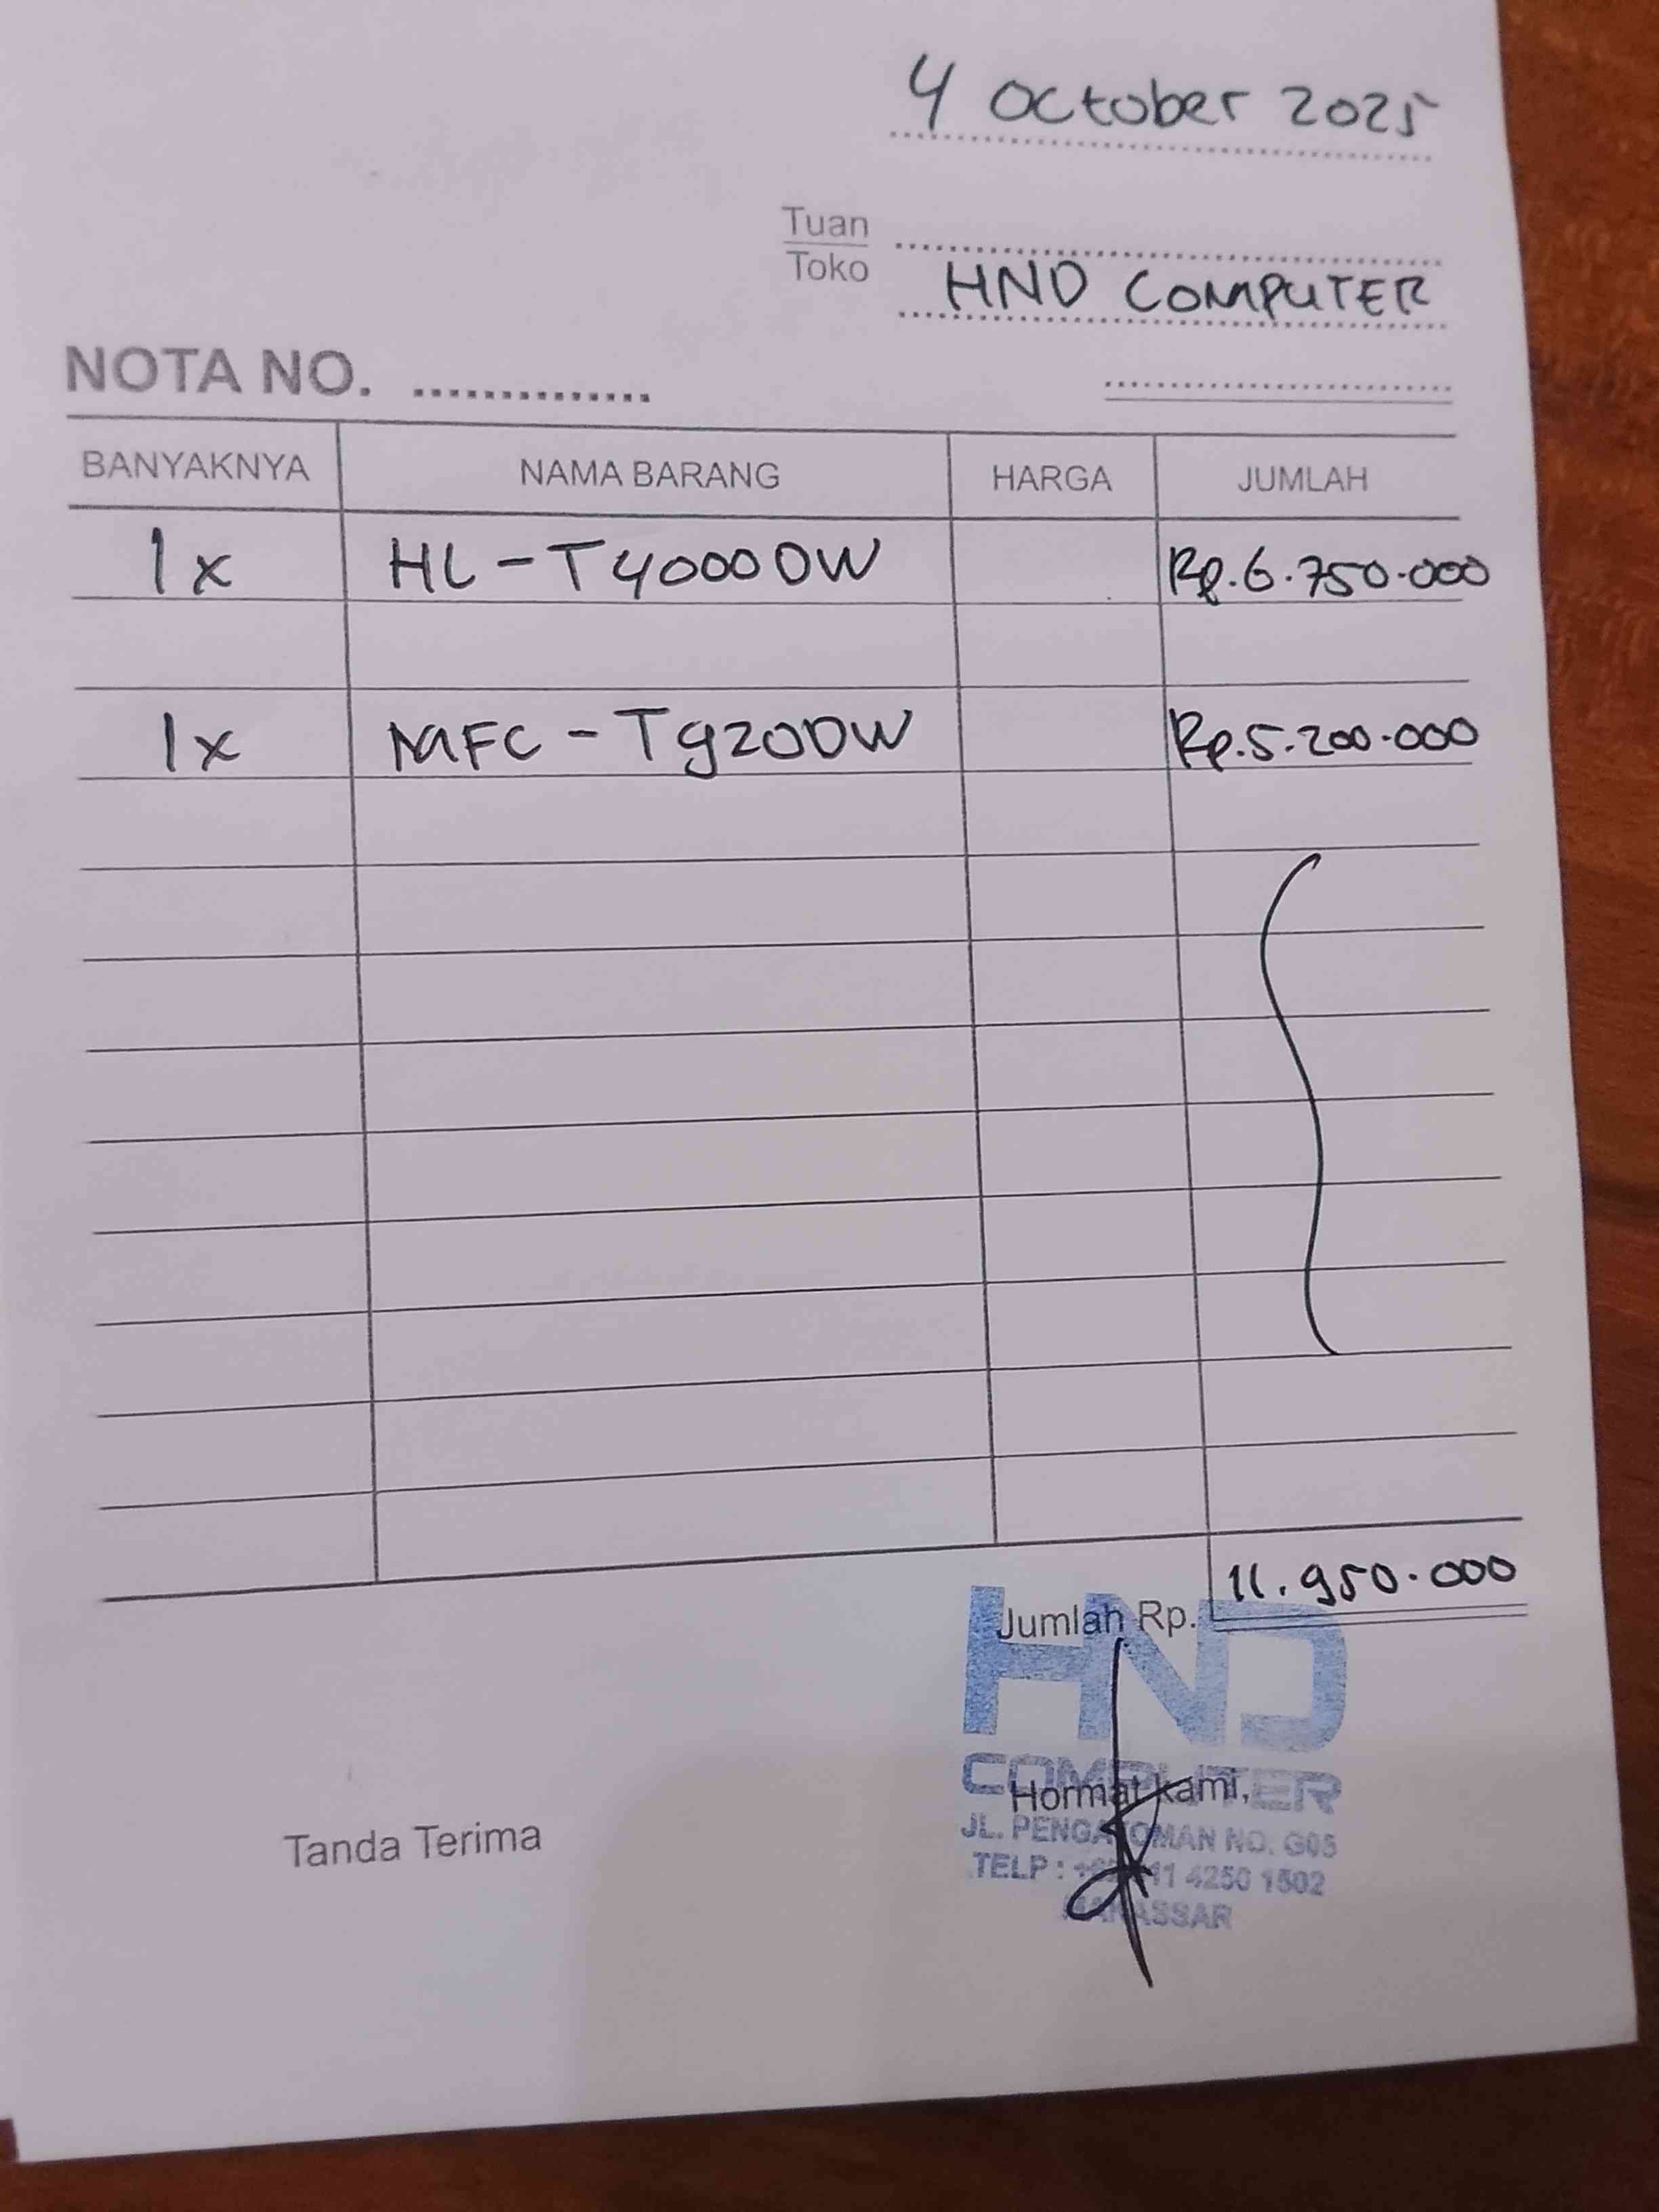 4 October 2025
Tuan
Toko HND COMPUTER
NOTA NO. ..............
BANYAKNYA NAMA BARANG HARGA JUMLAH
1x HL-T4000DW Rp.6.750.000
1x MFC-T920DW Rp.5.200.000
Jumlah Rp. 11.950.000
HND
COMPUTER
Tanda Terima Hormat kami,
JL. PENGAYOMAN NO. G05
TELP : 11 4250 1502
MAKASSAR